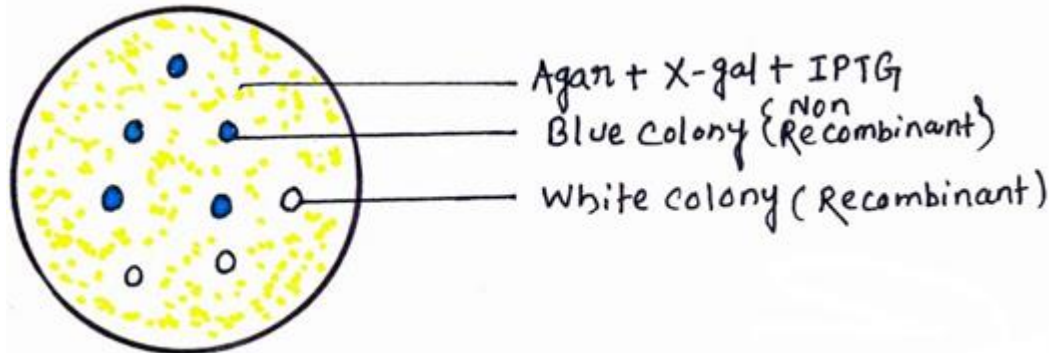 Agar + X-gal + IPTG
Blue colony {Non Recombinant}
White colony (Recombinant)